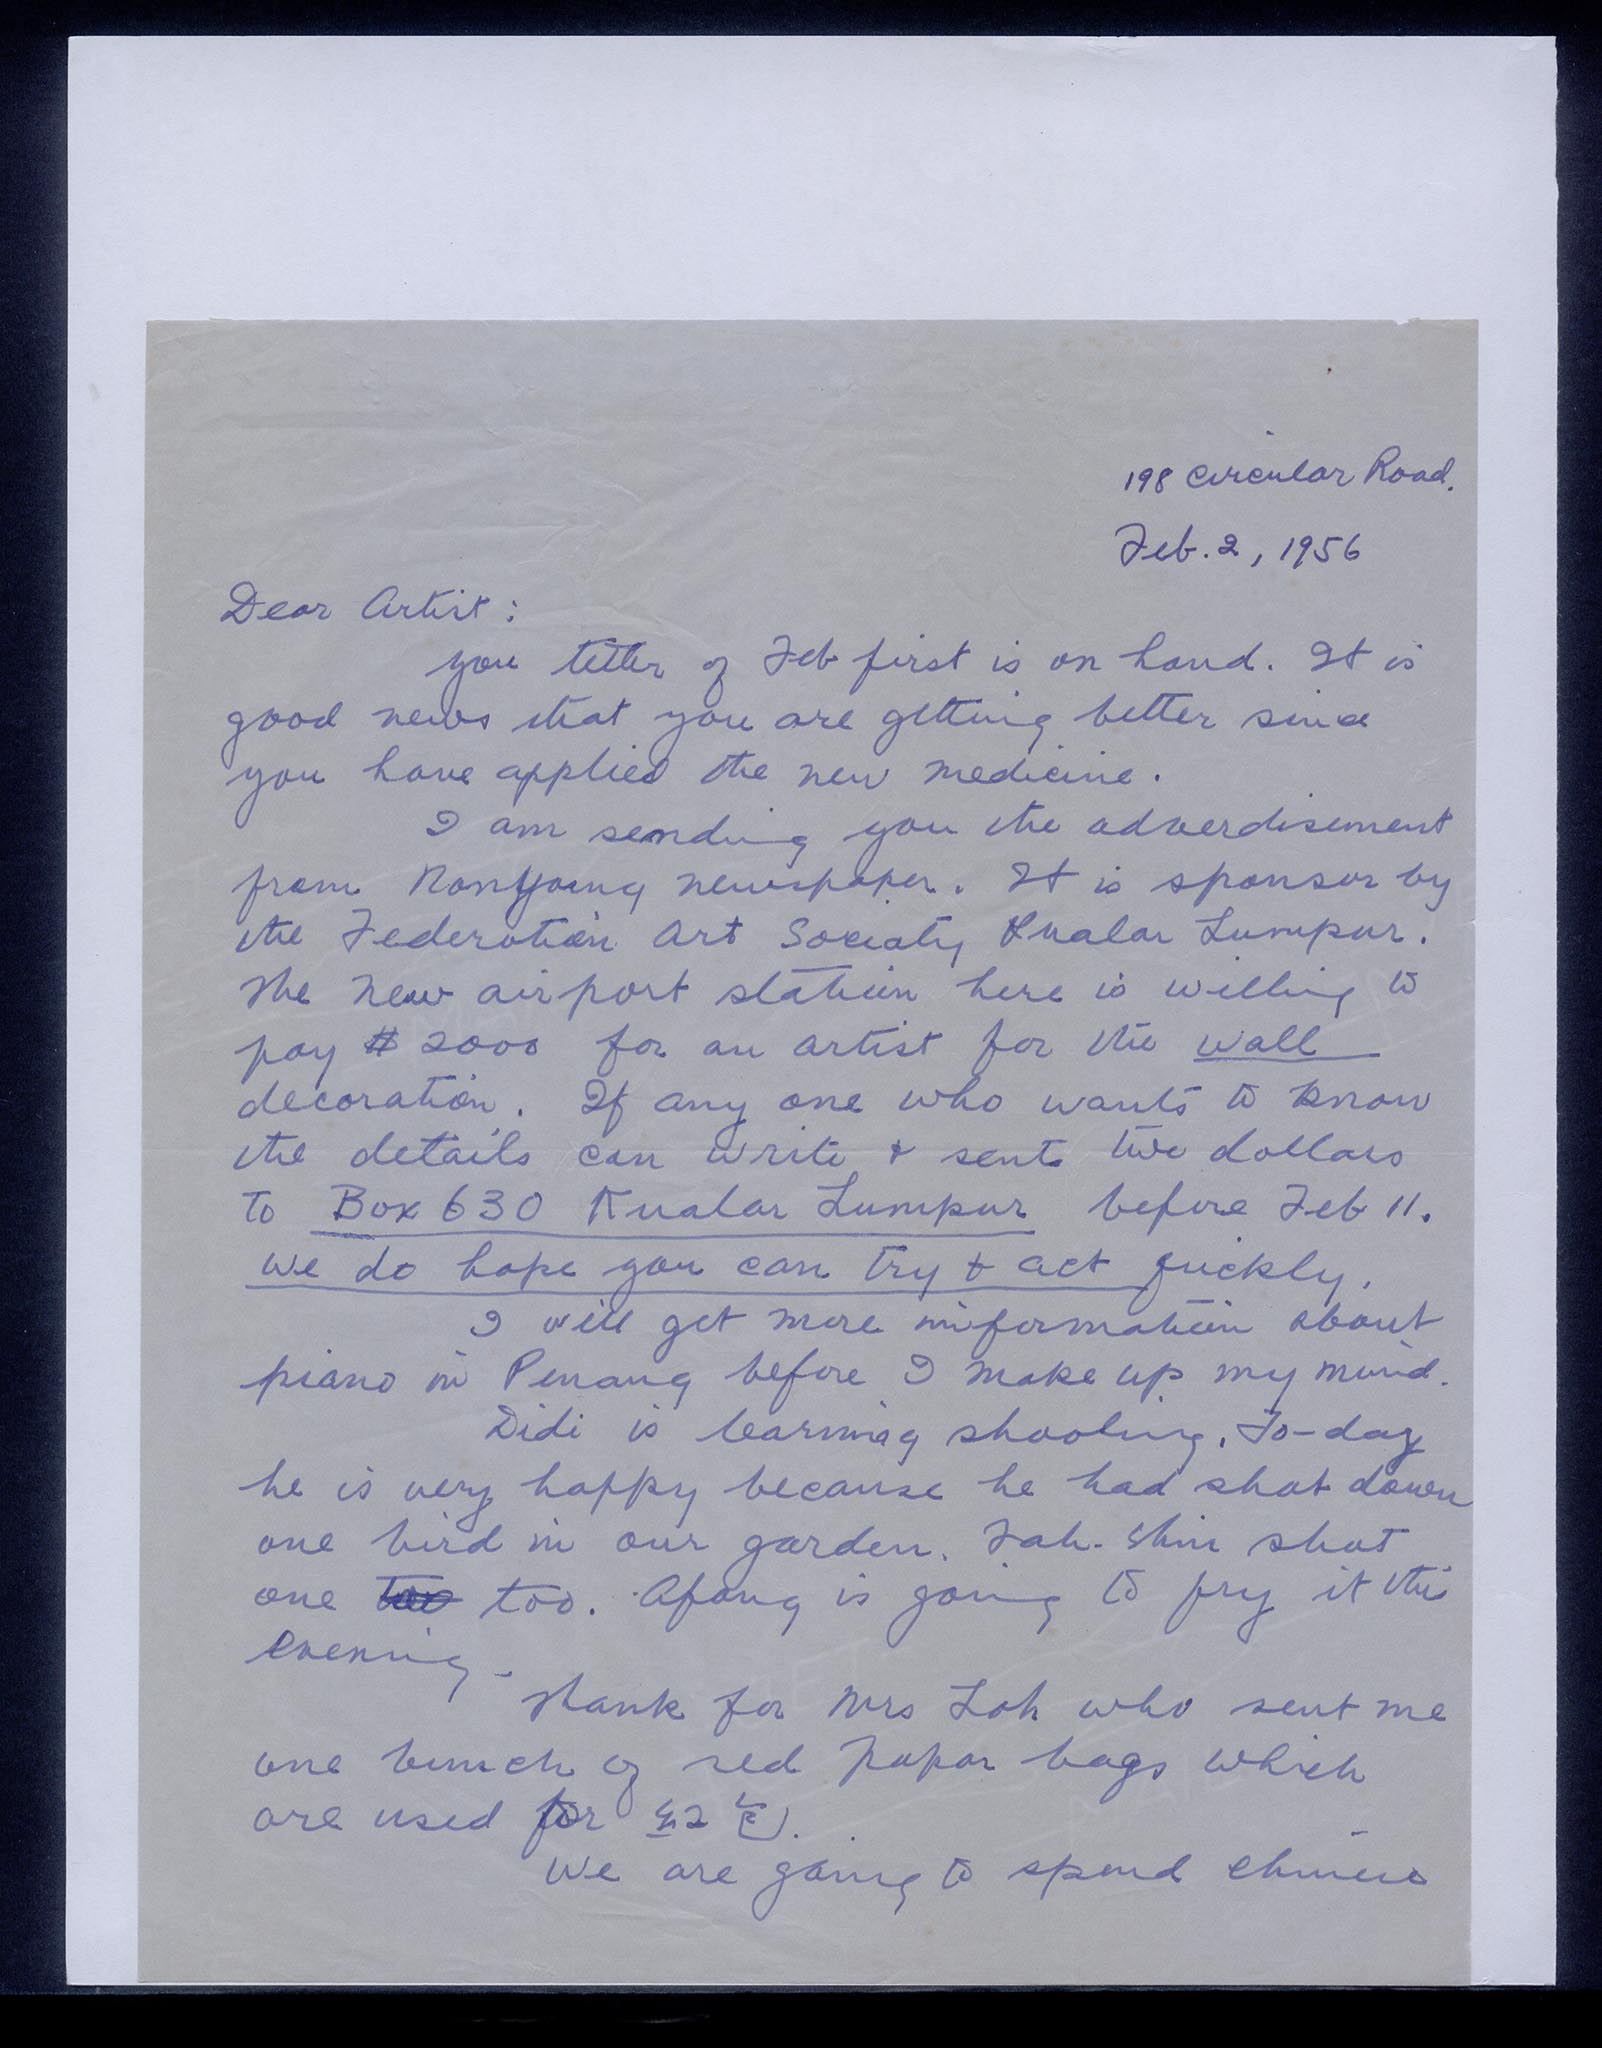 198 Circular Road.
Feb. 2, 1956
Dear Artist:
you letter of Feb first is on hand. It is
good news that you are getting better since
you have applied the new medicine.
I am sending you the adverdisement
from Nanyang newspaper. It is sponsor by
the Federation Art Sociaty Kualar Lumpur.
The new airport station here is willing to
pay $2000 for an artist for the wall
decoration. If any one who wants to know
the details can write & sent two dollars
to Box 630 Kualar Lumpur before Feb 11.
we do hope you can try & act quickly.
I will get more information about
piano in Penang before I make up my mind.
Didi is learning shooting. To-day
he is very happy because he had shot down
one bird in our garden. Fah-Shin shot
one too. Afong is going to fry it this
evening.
Thank for Mrs Loh who sent me
one bunch of red papar bags which
are used for
We are going to spend Chinese